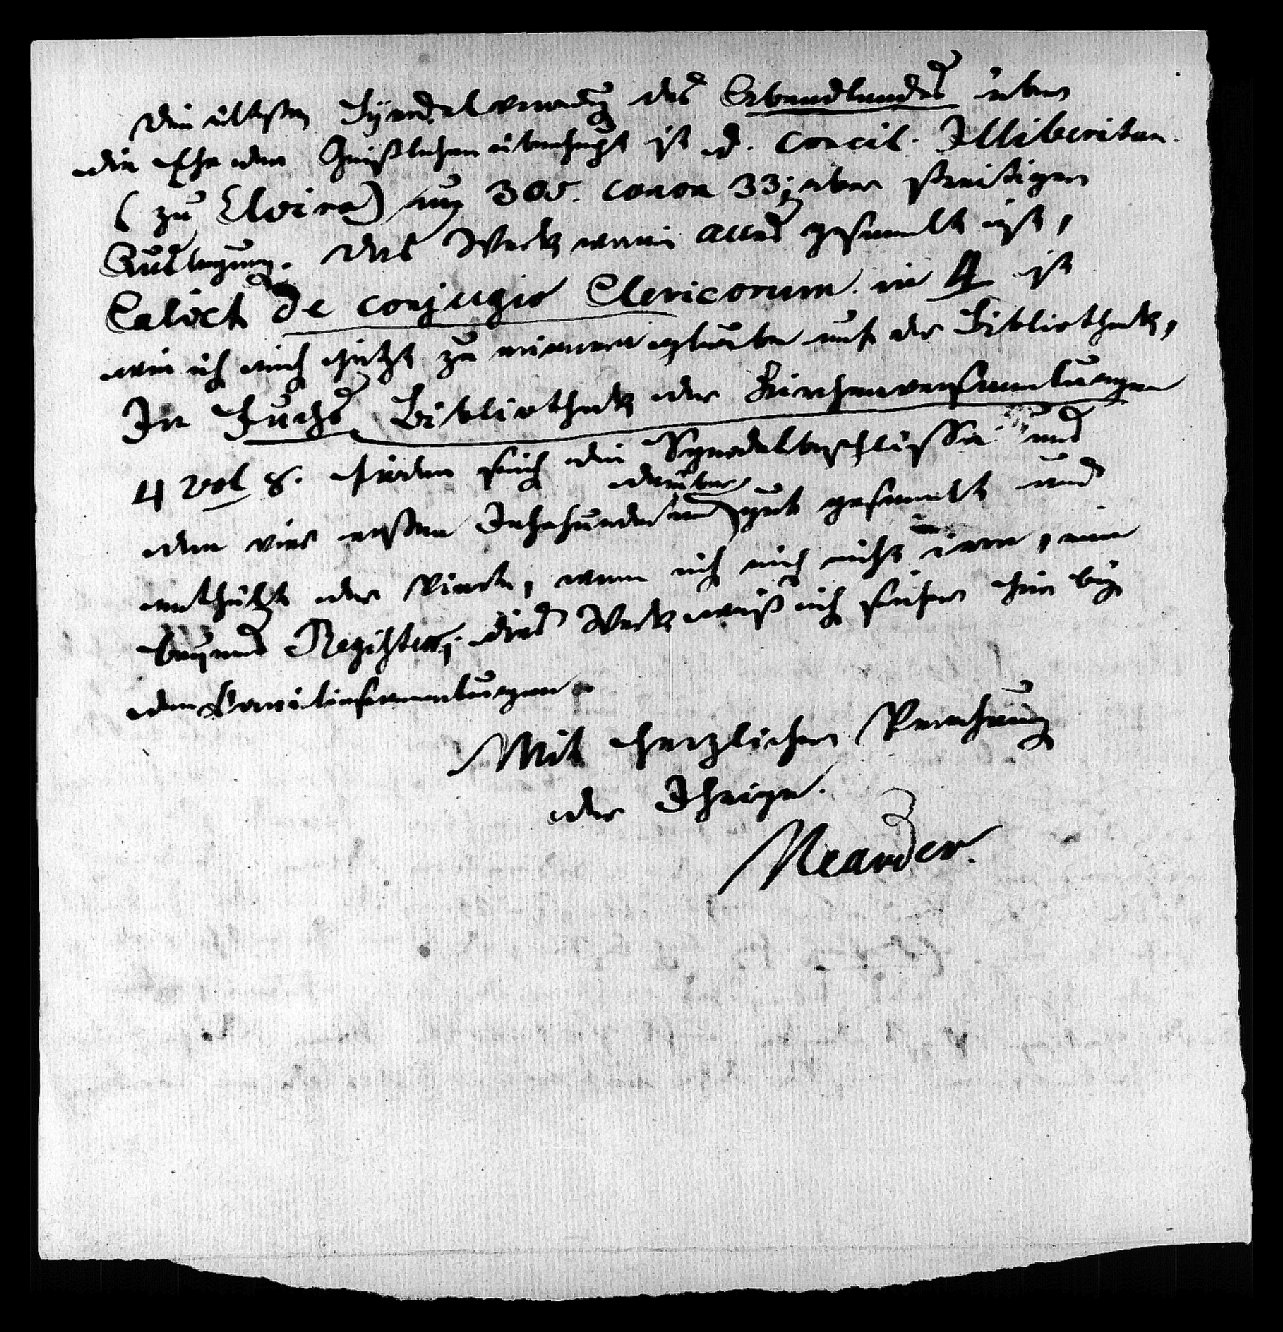 Die älteste Synodalverordg des Abendlandes über
die Ehe der Geistlichen überhaupt ist d. Concil. Illiberitan.
(zu Elvira) um 305. canon 33; aber streitigen
Auslegung. Das Werk worin alles gesammelt ist,
Calixt de conjugio Clericorum in 4 ist
wie ich mich jetzt zu erinnern glaube auf der Bibliothek,
In Fuchs Bibliothek der Kirchenversammlungen
4 vol 8. finden sich die Synodalbeschlüsse aus
den vier ersten Jahrhunderten darüber gut gesammelt und
enthält der Vierte, wenn ich mich nicht irre, ein
Register; dies Werk weiß ich sicher hier bey
den Conciliensammlungen.
Mit herzlicher Verehrung
der Ihrige.
Neander.